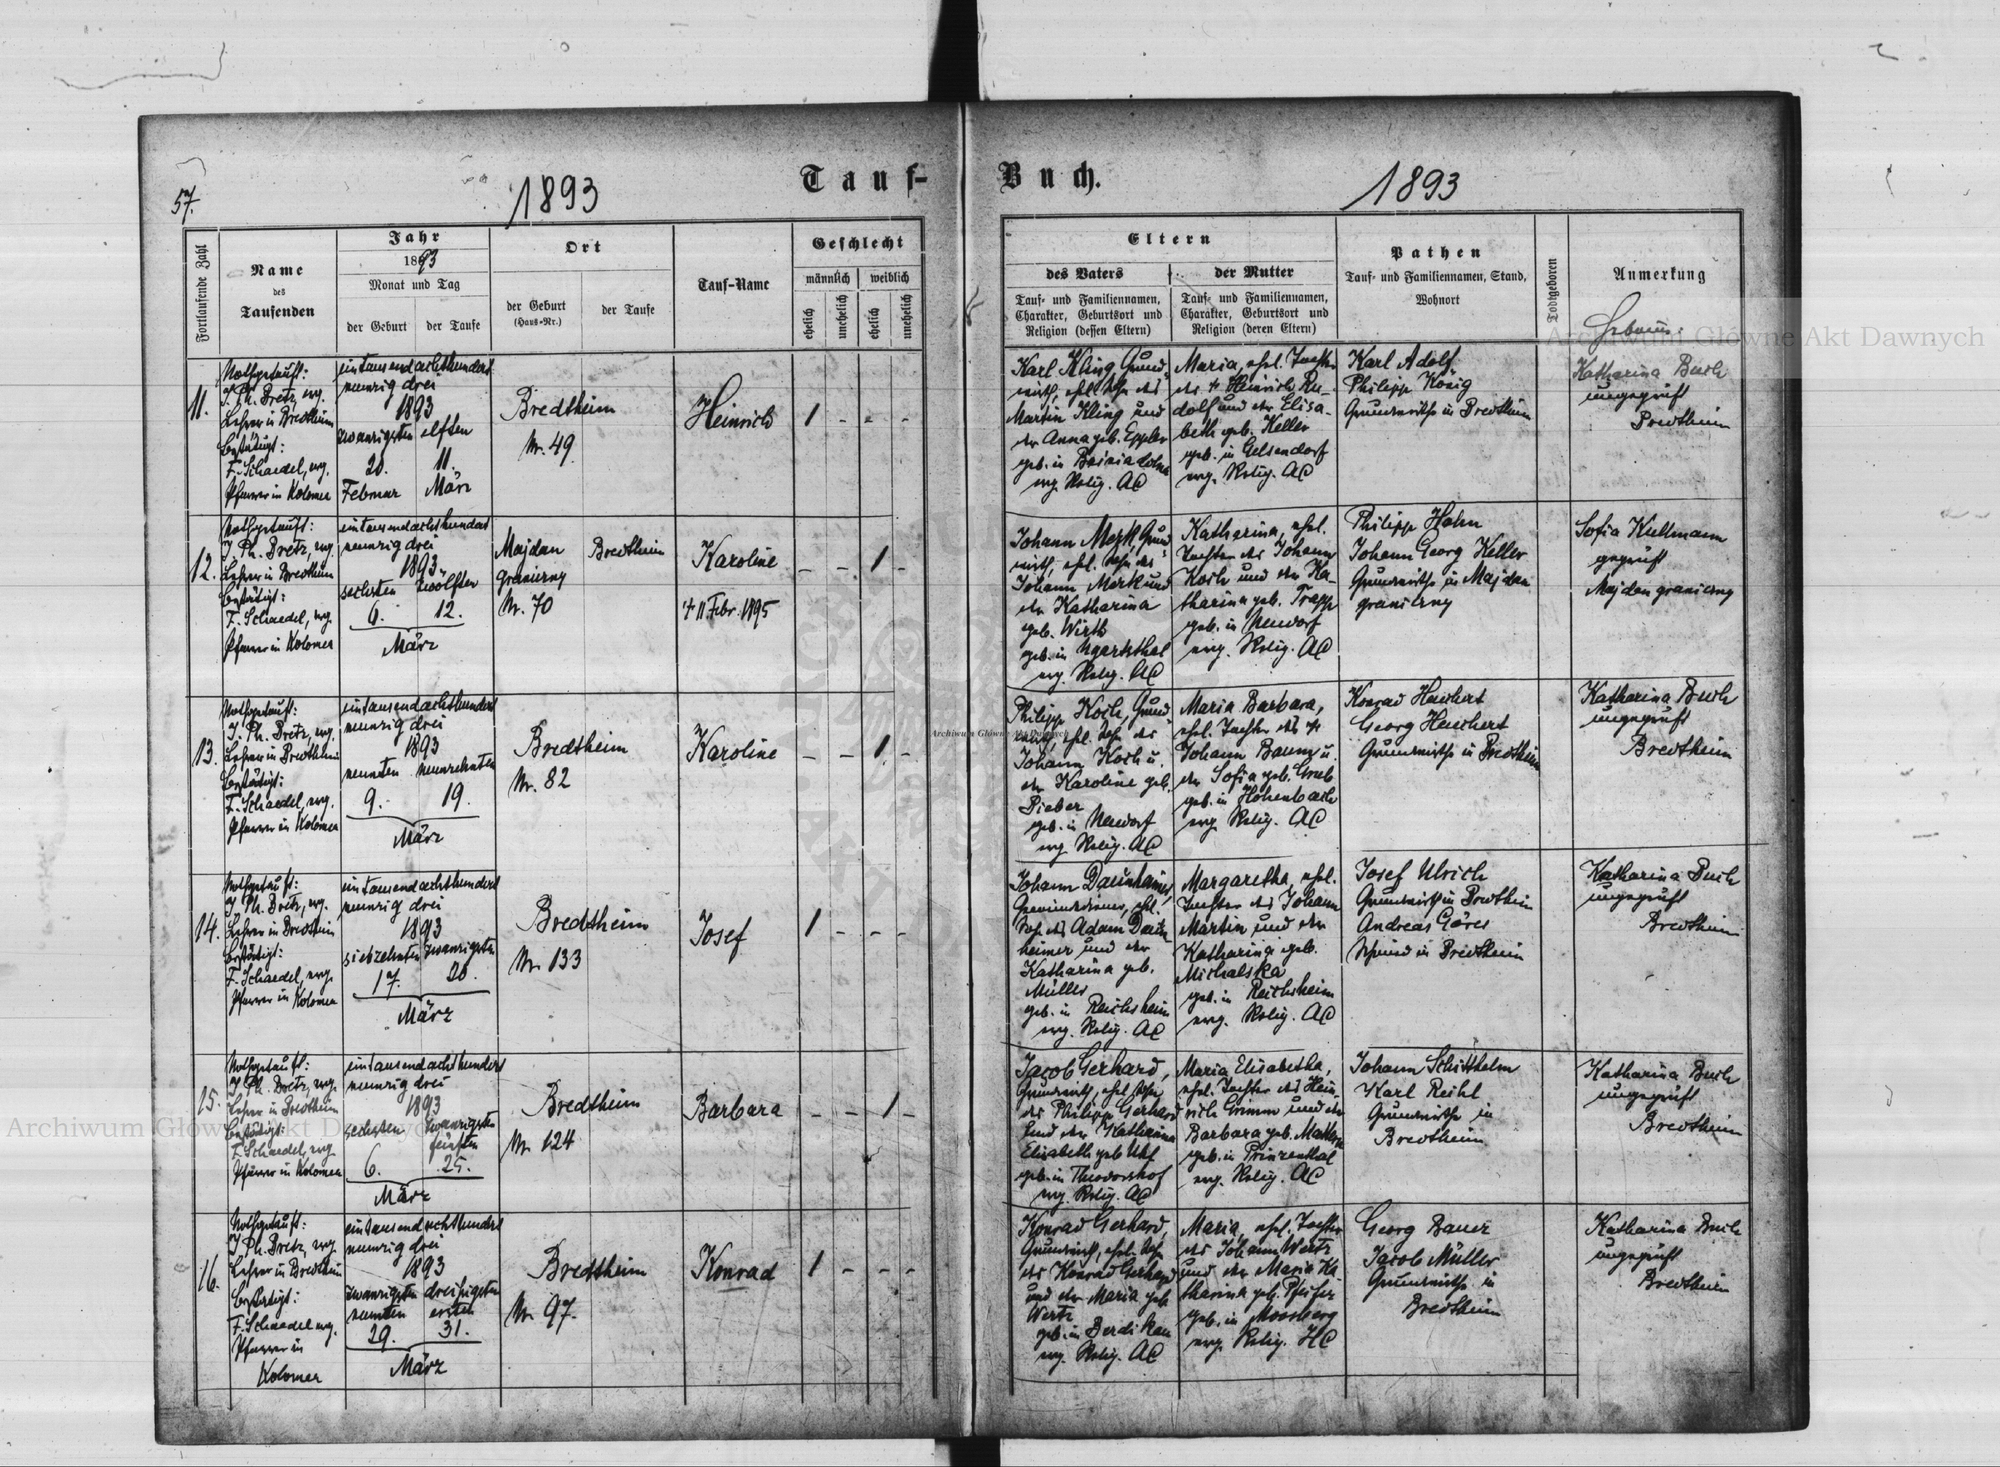 57.
1893
Tauf-
Buch.
1893
Fortlaufende Zahl
Name
des
Taufenden
Jahr
1893
Monat und Tag
der Geburt
der Taufe
Ort
der Geburt
(Haus-Nr.)
der Taufe
Tauf-Name
Geschlecht
männlich
weiblich
ehelich
unehelich
ehelich
unehelich
Eltern
des Vaters
der Mutter
Tauf- und Familiennamen,
Charakter, Geburtsort und
Religion (dessen Eltern)
Tauf- und Familiennamen,
Charakter, Geburtsort und
Religion (deren Eltern)
Pathen
Tauf- und Familiennamen, Stand,
Wohnort
Todtgeboren
Anmerkung
11.
Nothgetauft:
J. Ph. Bretz, evg.
Lehrer in Bredtheim
bestätigt:
F. Schaedel, evg.
Pfarrer in Kolomea
eintausendachthundert
neunzig drei
1893
zwanzigsten elften
20. 11.
Februar März
Bredtheim
Nr. 49
Heinrich
1 - - -
Karl Kling, Grund-
wirth, ehel. Sohn des
Martin Kling und
der Anna geb. Eppler
geb. in
evg. Relig. AC
Maria, ehel. Tochter
des + Heinrich Ru-
dolf und der Elisa-
beth geb. Keller
geb. in Gelsendorf
evg. Relig. AC
Karl Adolf
Philipp König
Grundwirthe in Bredtheim
Katharina Buch
ungeprüft
Bredtheim
12.
Nothgetauft:
J. Ph. Bretz, evg.
Lehrer in Bredtheim
bestätigt:
F. Schaedel, evg.
Pfarrer in Kolomea
eintausendachthundert
neunzig drei
1893
sechsten zwölften
6. 12.
März
Majdan
graniczny
Nr. 70
Bredtheim
Karoline
+ 11 Febr. 1895
- - 1 -
Johann Merk, Grund-
wirth, ehel. Sohn des
Johann Merk und
der Katharina
geb. Wirth
geb. in Ugartsthal
evg. Relig. AC
Katharina, ehel.
Tochter des Johann
Koch und der Ka-
tharina geb. Trapp
geb. in Neudorf
evg. Relig. AC
Philipp Hahn
Johann Georg Keller
Grundwirthe in Majdan
graniczny
Sofia Kullmann
geprüft
Majdan graniczny
13.
Nothgetauft:
J. Ph. Bretz, evg.
Lehrer in Bredtheim
bestätigt:
F. Schaedel, evg.
Pfarrer in Kolomea
eintausendachthundert
neunzig drei
1893
neunten neunzehnten
9. 19.
März
Bredtheim
Nr. 82
Karoline
- - 1 -
Philipp Koch, Grund-
wirth, ehel. Sohn des
Johann Koch u.
der Karoline geb.
Bieber
geb. in Neudorf
evg. Relig. AC
Maria Barbara,
ehel. Tochter des +
Johann Baum u.
der Sofia geb. Grub
geb. in Hohenbach
evg. Relig. AC
Konrad Heuchert
Georg Heuchert
Grundwirthe in Bredtheim
Katharina Buch
ungeprüft
Bredtheim
14.
Nothgetauft:
J. Ph. Bretz, evg.
Lehrer in Bredtheim
bestätigt:
F. Schaedel, evg.
Pfarrer in Kolomea
eintausendachthundert
neunzig drei
1893
siebzehnten zwanzigsten
17. 20.
März
Bredtheim
Nr. 133
Josef
1 - - -
Johann Daunheimer,
Gemeindediener, ehel.
Sohn des Adam Daun-
heimer und der
Katharina geb.
Müller
geb. in Reichsheim
evg. Relig. AC
Margaretha, ehel.
Tochter des Johann
Martin und der
Katharina geb.
Michalska
geb. in Reichsheim
evg. Relig. AC
Josef Ulrich
Grundwirth in Bredtheim
Andreas Göres
Schmied in Bredtheim
Katharina Buch
ungeprüft
Bredtheim
15.
Nothgetauft:
J. Ph. Bretz, evg.
Lehrer in Bredtheim
bestätigt:
F. Schaedel, evg.
Pfarrer in Kolomea
eintausendachthundert
neunzig drei
1893
sechsten zwanzigsten
fünften
6. 25.
März
Bredtheim
Nr. 124
Barbara
- - 1 -
Jacob Gerhard,
Grundwirth, ehel. Sohn
des Philipp Gerhard
und der Katharina
Elisabeth geb.
geb. in Theodorshof
evg. Relig. AC
Maria Elisabetha,
ehel. Tochter des Hein-
rich Grimm und der
Barbara geb.
geb. in Prinzenthal
evg. Relig. AC
Johann Schitthelm
Karl Reihl
Grundwirthe in
Bredtheim
Katharina Buch
ungeprüft
Bredtheim
16.
Nothgetauft:
J. Ph. Bretz, evg.
Lehrer in Bredtheim
bestätigt:
F. Schaedel evg.
Pfarrer in
Kolomea
eintausendachthundert
neunzig drei
1893
zwanzigsten dreißigsten
neunten ersten
29. 31.
März
Bredtheim
Nr. 97.
Konrad
1 - - -
Konrad Gerhard,
Grundwirth, ehel. Sohn
des Konrad Gerhard
und der Maria geb.
Wertz
geb. in Berdikau
evg. Relig. AC
Maria, ehel. Tochter
des Johann Wertz
und der Maria Ka-
tharina geb. Pfeifer
geb. in Moosberg
evg. Relig. HC
Georg Bauer
Jacob Müller
Grundwirthe in
Bredtheim
Katharina Buch
ungeprüft
Bredtheim
Archiwum Główne Akt Dawnych
Archiwum Główne Akt Dawnych
Archiwum Główne Akt Dawnych